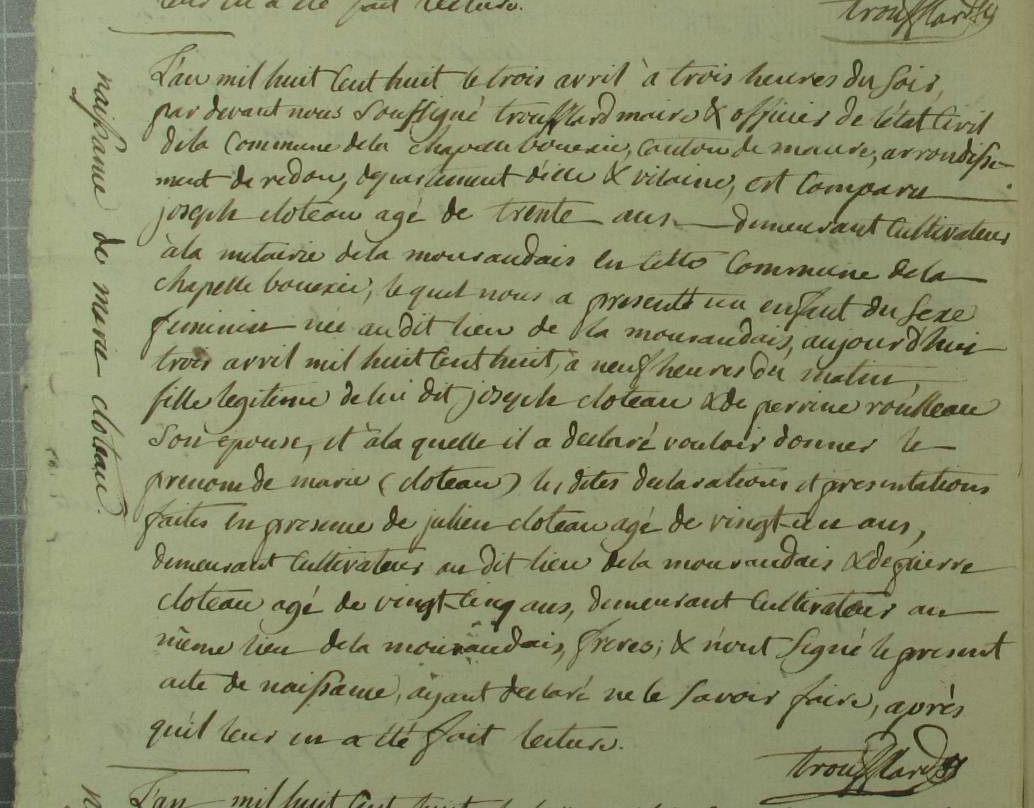 leur en a été fait lecture.
troufflard
naissance de marie cloteau
L'an mil huit cent huit le trois avril à trois heures du soir,
par devant nous soussigné troufflard maire & officier de l'état civil
de la commune de la chapelle bouexic, canton de maure, arrondisse-
ment de redon, département d'ille & vilaine, est comparu
joseph cloteau agé de trente ans demeurant cultivateur
à la metairie de la mourandais en cette commune de la
chapelle bouexic, le quel nous a presenté un enfant du sexe
feminin née au dit lieu de la mourandais, aujourd'hui
trois avril mil huit cent huit, à neuf heures du matin,
fille legitime de lui dit joseph cloteau & de perrine roulleau
son epouse, et à la quelle il a declaré vouloir donner le
prenom de marie (cloteau) les dites declarations et presentations
faites en presence de julien cloteau agé de vingt-un ans,
demeurant cultivateur au dit lieu de la mourandais & de pierre
cloteau agé de vingt-cinq ans, demeurant cultivateur au
même lieu de la mourandais, freres; & n'ont signé le present
acte de naissance, ayant declaré ne le savoir faire, après
qu'il leur en a été fait lecture.
troufflard
L'an mil huit cent huit